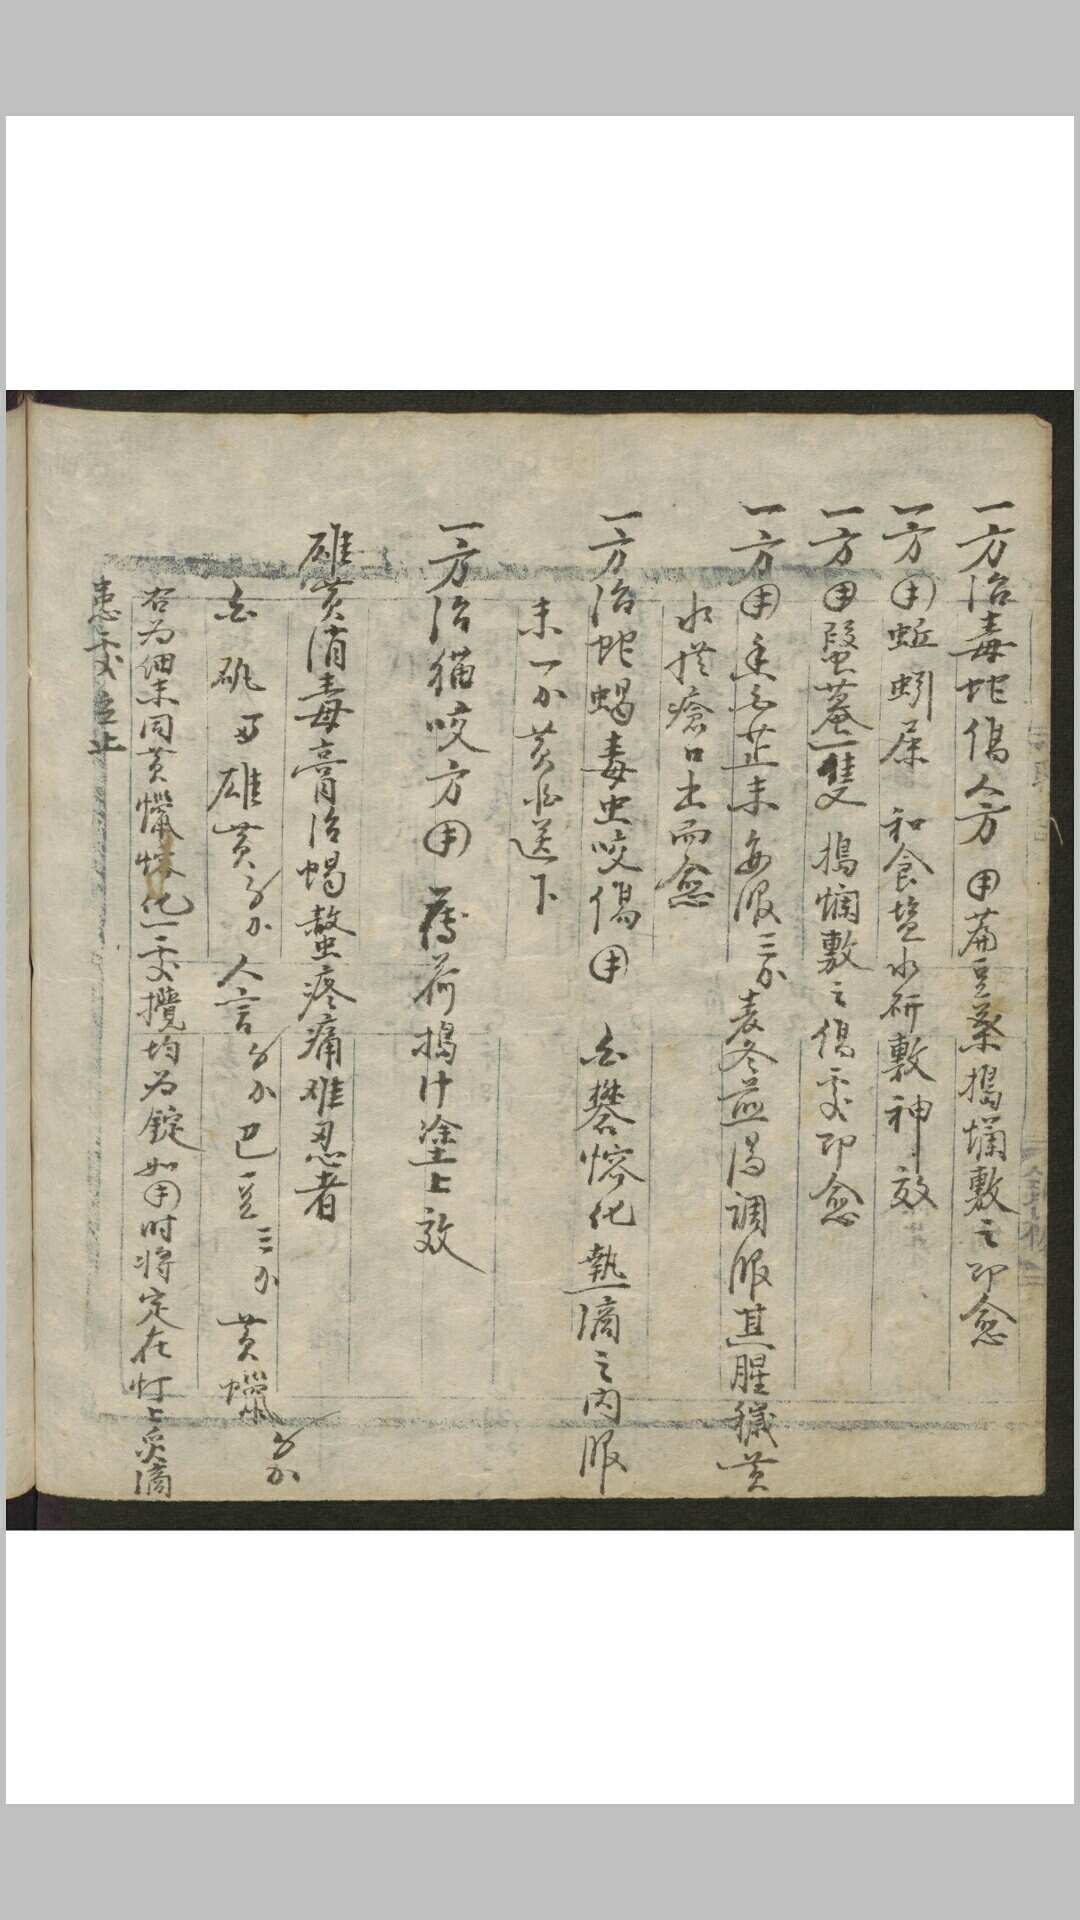 一方治毒蛇傷人方 用萹豆葉搗爛敷之即愈
一方用蚯蚓屎 和食塩水研敷神效
一方用蝦蟇一隻 搗爛敷之傷處即愈
一方用 白芷末 每服三分麦冬煎湯調服其腥穢黄
水 瘡口出而愈
一方治蛇蝎毒虫咬傷 用 白礬熔化熱滴之内服
末一分黄酒送下
一方治猫咬方 用 薄荷搗汁塗上效
雄黄消毒膏治蝎螫疼痛难忍者
白矾 雄黄 人言 巴豆三分 黄蠟
右为细末同黄蠟熔化一處攪均为錠如用时将定在灯上炙滴
患處立止